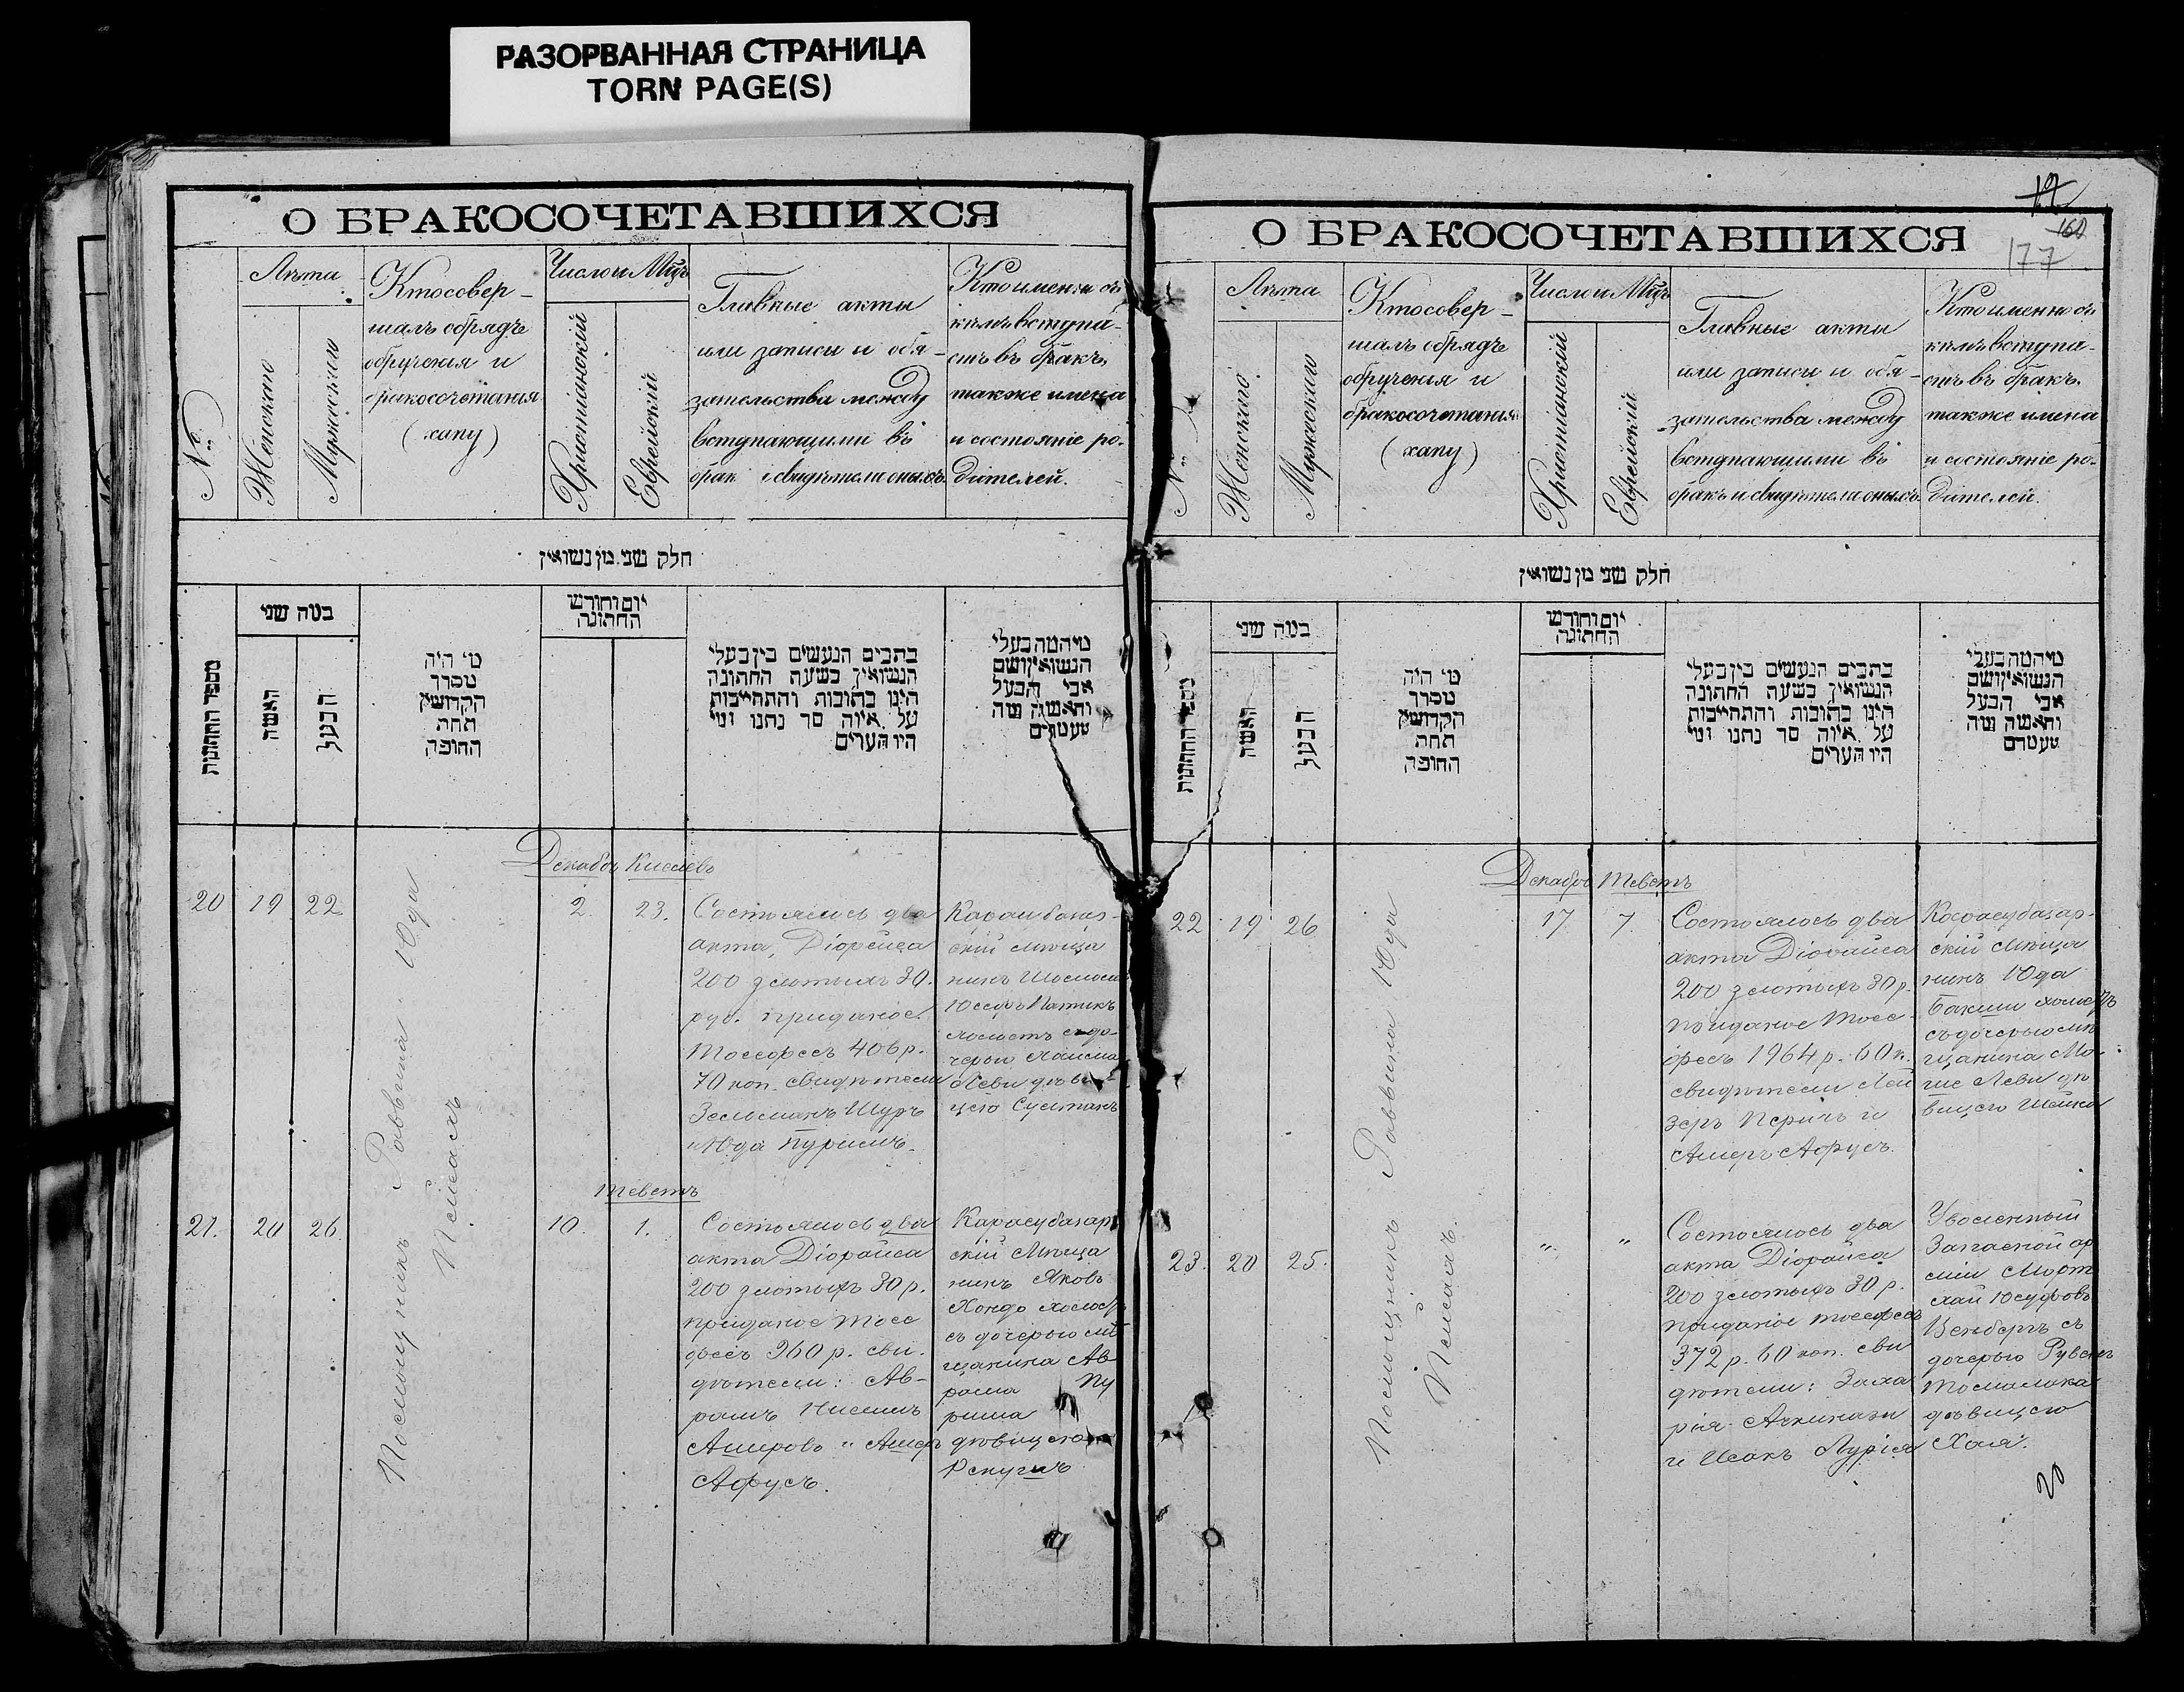 РАЗОРВАННАЯ СТРАНИЦА
TORN PAGE(S)
О БРАКОСОЧЕТАВШИХСЯ
№
Лѣта
Женскаго
Мужескаго
Кто совер-
шалъ обрядъ
обрученія и
бракосочетанія
(хапу)
Число и Мцъ
Христіанскій
Еврейскій
Главные акты
или записи и обя-
зательства между
вступающими въ
брак и свидѣтели оныхъ.
Кто именно съ
кѣмъ вступа-
етъ въ бракъ.
также имена
и состояніе ро-
дителей.
חלק שני מן נשואין
מספר החתונות
במה שני
האשה
הבעל
מי היה
מסדר
הקדושין
תחת
החופה
יום וחודש
החתונה
כתבים הנעשים בין בעלי
הנשואין בשעה החתונה
היינו כתובות והתחייבות
על איזה סך נתנו ומי
היו העדים
מי המה בעלי
הנשואין ושם
אבי הבעל
והאשה ומה
מעמדם
Декабрь Кислевъ
20 19 22
Посмощникъ Раввина Юда
Пейсахъ
2 23.
Состоялось два
акта, Діорайса
200 злотыхъ 30.
руб. приданое
Тоссфесъ 406 р.
70 коп. свидѣтели
Зельманъ Шуръ
и Юда Пуримъ.
Карасубазар-
скій мѣща
нинъ Шоломъ
Юсефъ Патикъ
холостъ съ до-
черью Хаима
Леви дѣви-
цею Султанъ
Теветъ
21. 20 26
10. 1.
Состоялось два
акта Діорайса
200 злотыхъ 30 р.
приданое Тосс
фесъ 360 р. сви-
дѣтели: Ав-
рамъ Ниссимъ
Ашеровъ и Ашеръ
Афусъ.
Карасубазар
скій Мѣща
нинъ Яковъ
Хондо холостъ
съ дочерью мѣ
щанина Ав
рама Пу
рима
дѣвицею
О БРАКОСОЧЕТАВШИХСЯ
12
160
177
№
Лѣта
Женскаго
Мужескаго
Кто совер-
шалъ обрядъ
обрученія и
бракосочетанія
(хапу)
Число и Мцъ
Христіанскій
Еврейскій
Главные акты
или записи и обя-
зательства между
вступающими въ
бракъ и свидѣтели оныхъ
Кто именно съ
кѣмъ вступа-
етъ въ бракъ.
также имена
и состояніе ро-
дителей.
חלק שני מן נשואין
מספר החתונות
במה שני
האשה
הבעל
מי היה
מסדר
הקדושין
תחת
החופה
יום וחודש
החתונה
כתבים הנעשים בין בעלי
הנשואין בשעה החתונה
היינו כתובות והתחייבות
על איזה סך נתנו ומי
היו העדים
מי המה בעלי
הנשואין ושם
אבי הבעל
והאשה ומה
מעמדם
Декабрь Теветъ
22 19 26
Посмощникъ Раввина Юда
Пейсахъ.
17 7
Состоялось два
акта Діорайса
200 злотыхъ 30 р.
приданое Тосс-
фесъ 1964 р. 60 к.
свидѣтели Лей
зеръ Перичъ и
Ашеръ Афусъ.
Карасубазар-
скій мѣща
нинъ Юда
Бакши холостъ
съ дочерью мѣ
щанина Мо-
ше Леви дѣ
вицею
23. 20 25.
" "
Состоялось два
акта Діорайса
200 злотыхъ 30 р.
приданое тоссфесъ
372 р. 60 коп. сви
дѣтели: Заха
рія Ачкинази
и Исакъ Лурія
Уволенный
Запасной ар
міи Морт
хай Юсуфовъ
съ
дочерью Рувенъ
Томалака
дѣвицею
Хая.
20